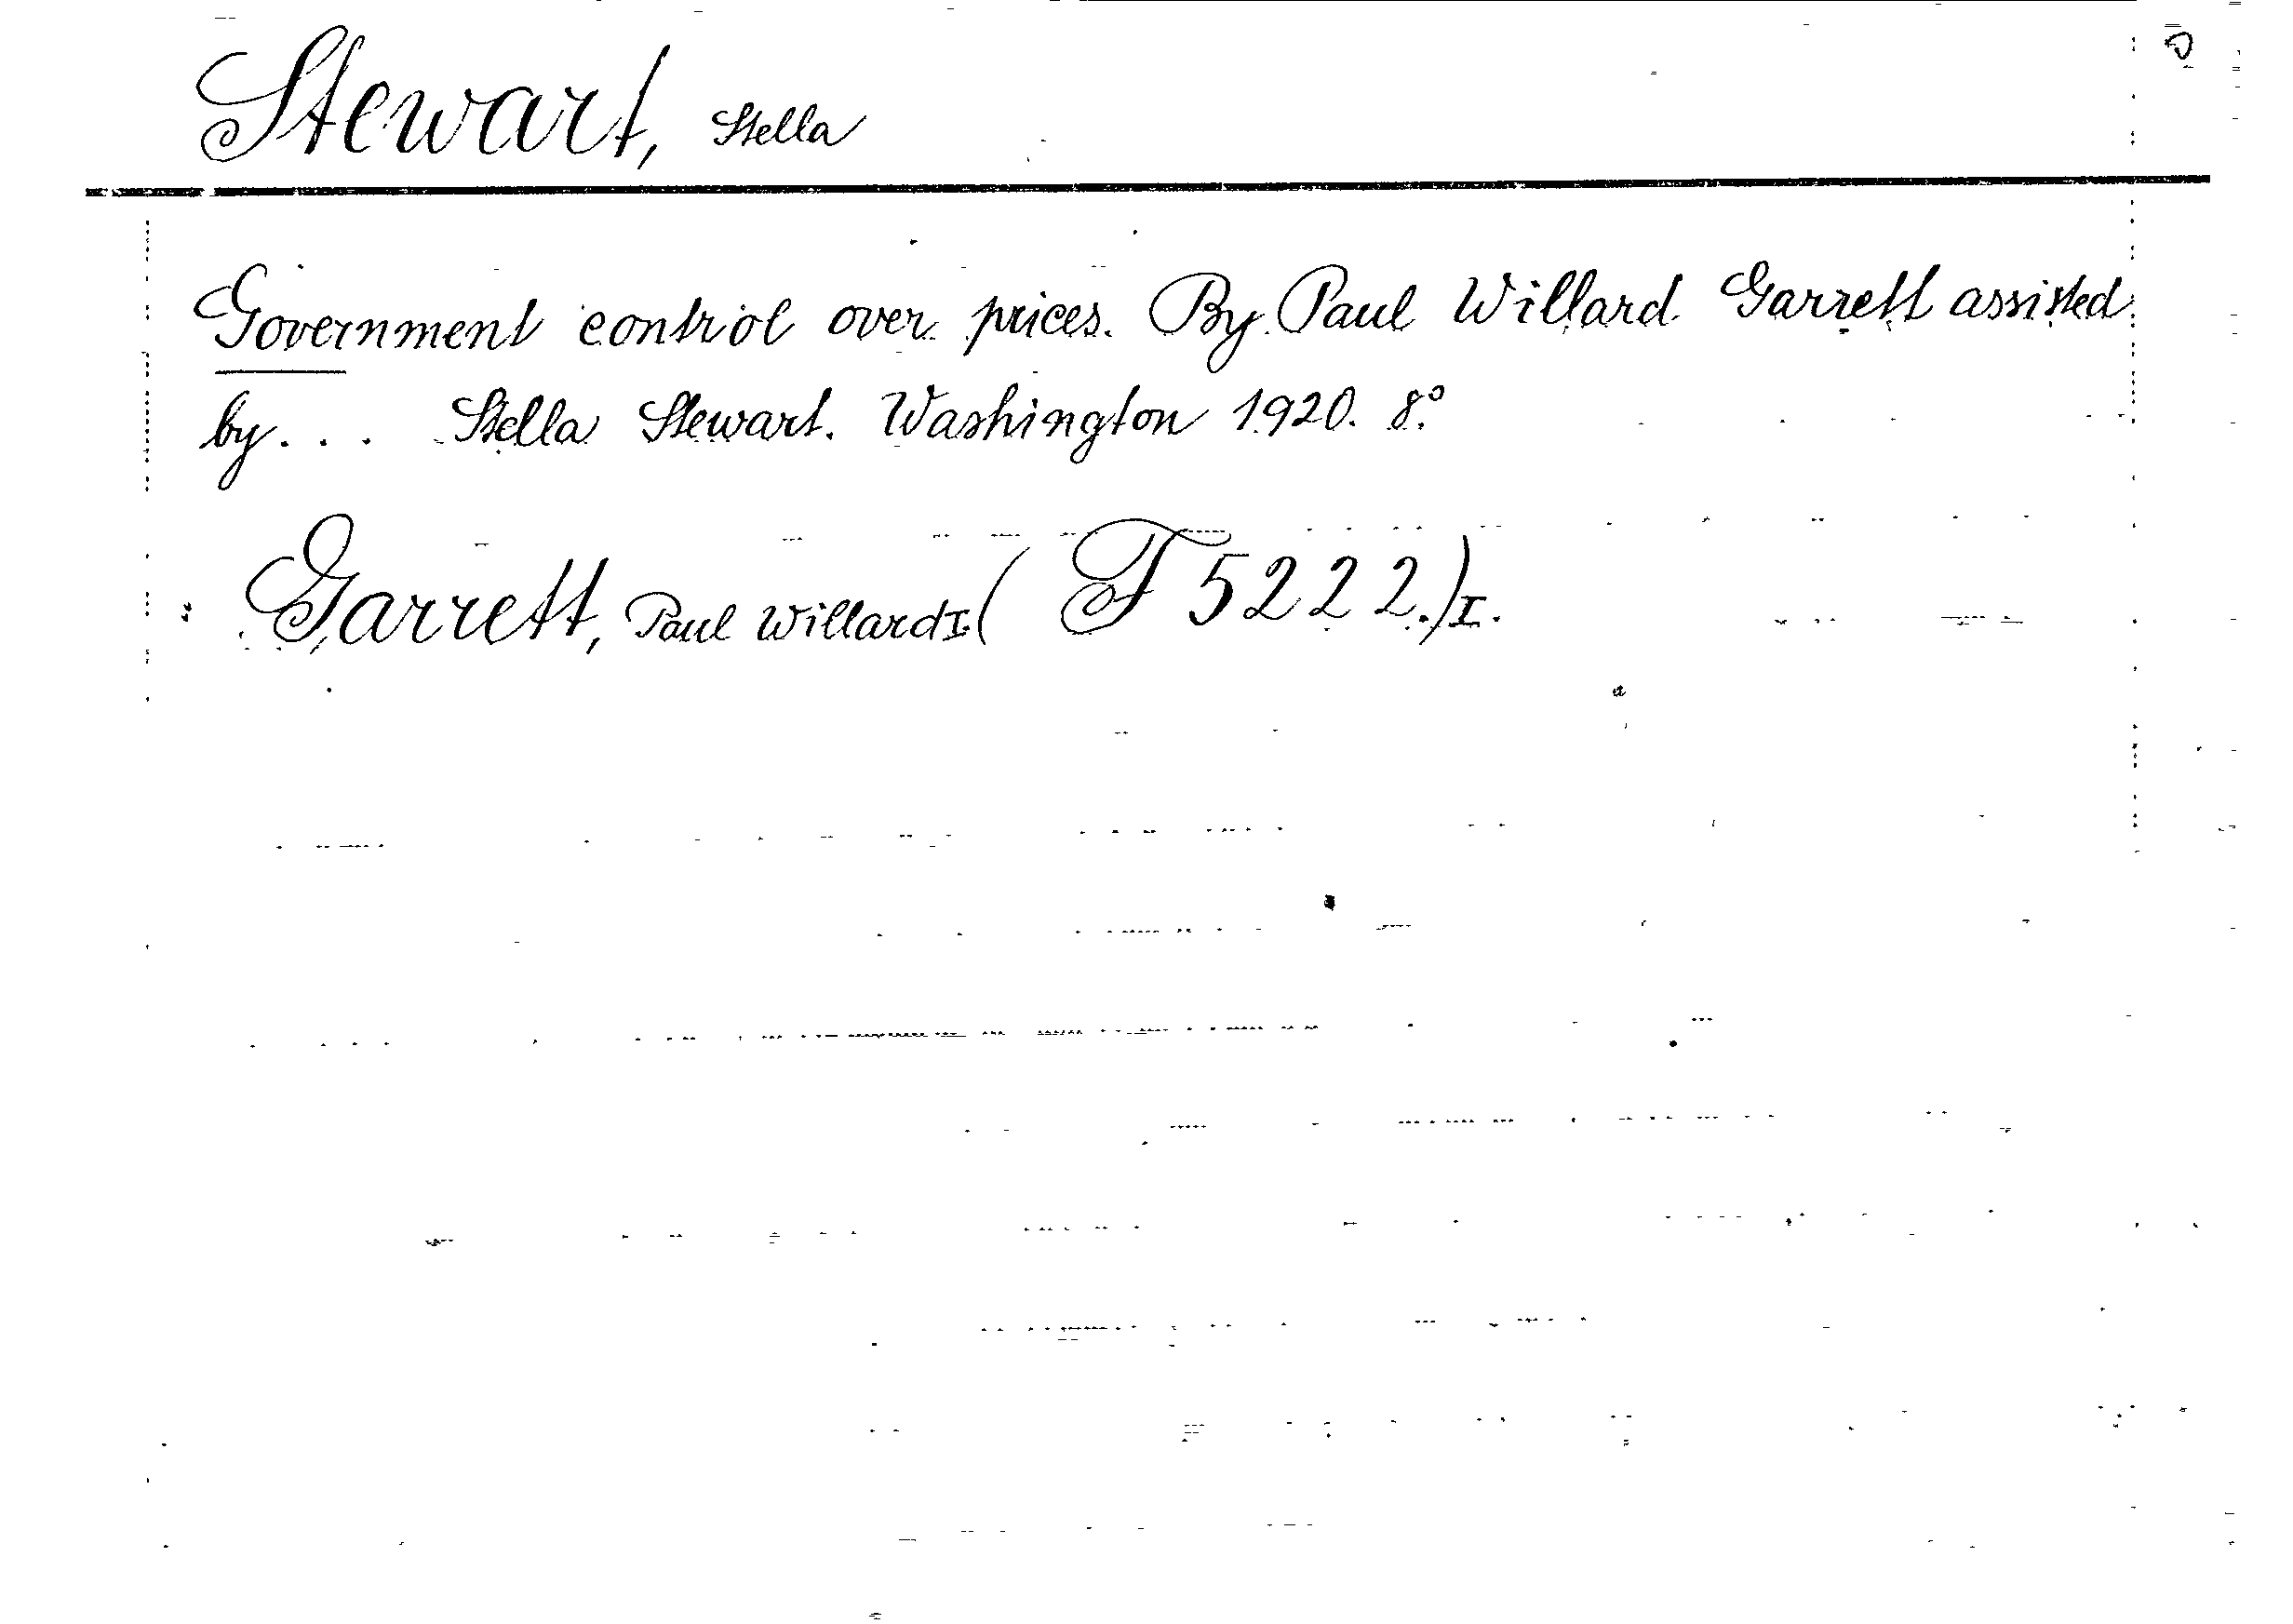 Stewart, Stella
Government control over prices. By Paul Willard Garrett assisted
by... Stella Stewart. Washington 1920. 8°
Garrett, Paul Willard I. (F 5222.) I.